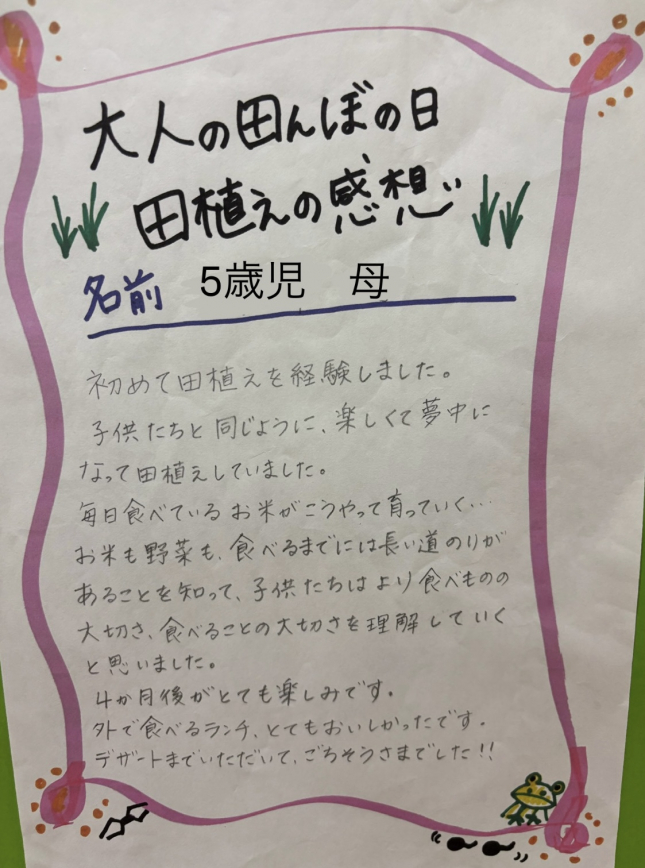 大人の田んぼの日
田植えの感想
名前 5歳児 母
初めて田植えを経験しました。
子供たちと同じように、楽しくて夢中に
なって田植えしていました。
毎日食べているお米がこうやって育っていく…
お米も野菜も、食べるまでには長い道のりが
あることを知って、子供たちはより食べものの
大切さ、食べることの大切さを理解していく
と思いました。
4か月後がとても楽しみです。
外で食べるランチ、とてもおいしかったです。
デザートまでいただいて、ごちそうさまでした!!